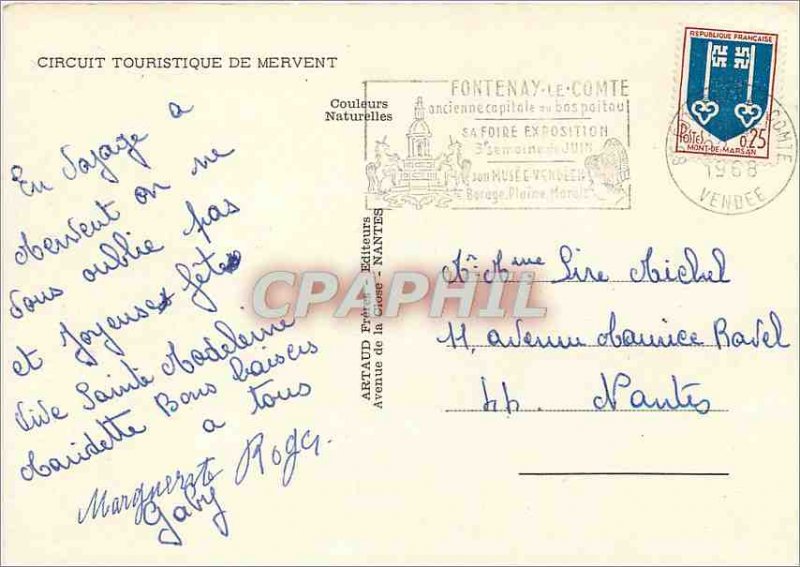 CIRCUIT TOURISTIQUE DE MERVENT
Couleurs
Naturelles
FONTENAY-LE-COMTE
ancienne capitale du bas poitou
SA FOIRE EXPOSITION
3e semaine de JUIN
son MUSÉE VENDÉEN
Bocage, Plaine, Marais
REPUBLIQUE FRANÇAISE
Postes
0,25
MONT-DE-MARSAN
COMTE
1968
VENDEE
En Voyage a
Mervent on ne
vous oublie pas
et Joyeuses fêtes
Vive Sainte Madeleine
Maridette Bons baisers
a tous
Marguerite Roger
Gaby
ARTAUD Frères - Editeurs
Avenue de la Close - NANTES
CPAPHIL
Mr Mme Sire Michel
11, avenue Maurice Ravel
44. Nantes